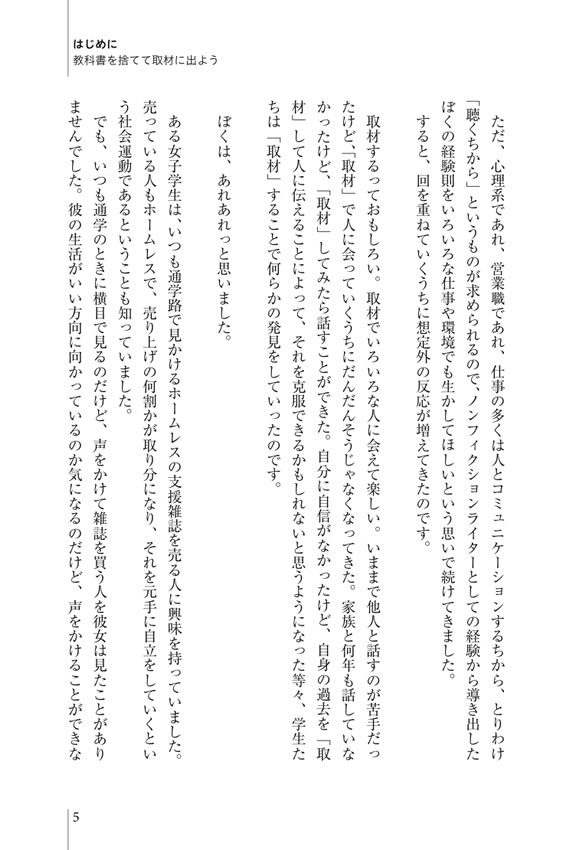 はじめに
教科書を捨てて取材に出よう
ただ、心理系であれ、営業職であれ、仕事の多くは人とコミュニケーションするちから、とりわけ
「聴くちから」というものが求められるので、ノンフィクションライターとしての経験から導き出した
ぼくの経験則をいろいろな仕事や環境でも生かしてほしいという思いで続けてきました。
すると、回を重ねていくうちに想定外の反応が増えてきたのです。
取材するっておもしろい。取材でいろいろな人に会えて楽しい。いままで他人と話すのが苦手だっ
たけど、「取材」で人に会っていくうちにだんだんそうじゃなくなってきた。家族と何年も話していな
かったけど、「取材」してみたら話すことができた。自分に自信がなかったけど、自身の過去を「取
材」して人に伝えることによって、それを克服できるかもしれないと思うようになった等々、学生た
ちは「取材」することで何らかの発見をしていったのです。
ぼくは、あれあれっと思いました。
ある女子学生は、いつも通学路で見かけるホームレスの支援雑誌を売る人に興味を持っていました。
売っている人もホームレスで、売り上げの何割かが取り分になり、それを元手に自立をしていくとい
う社会運動であるということも知っていました。
でも、いつも通学のときに横目で見るのだけど、声をかけて雑誌を買う人を彼女は見たことがあり
ませんでした。彼の生活がいい方向に向かっているのか気になるのだけど、声をかけることができな
5